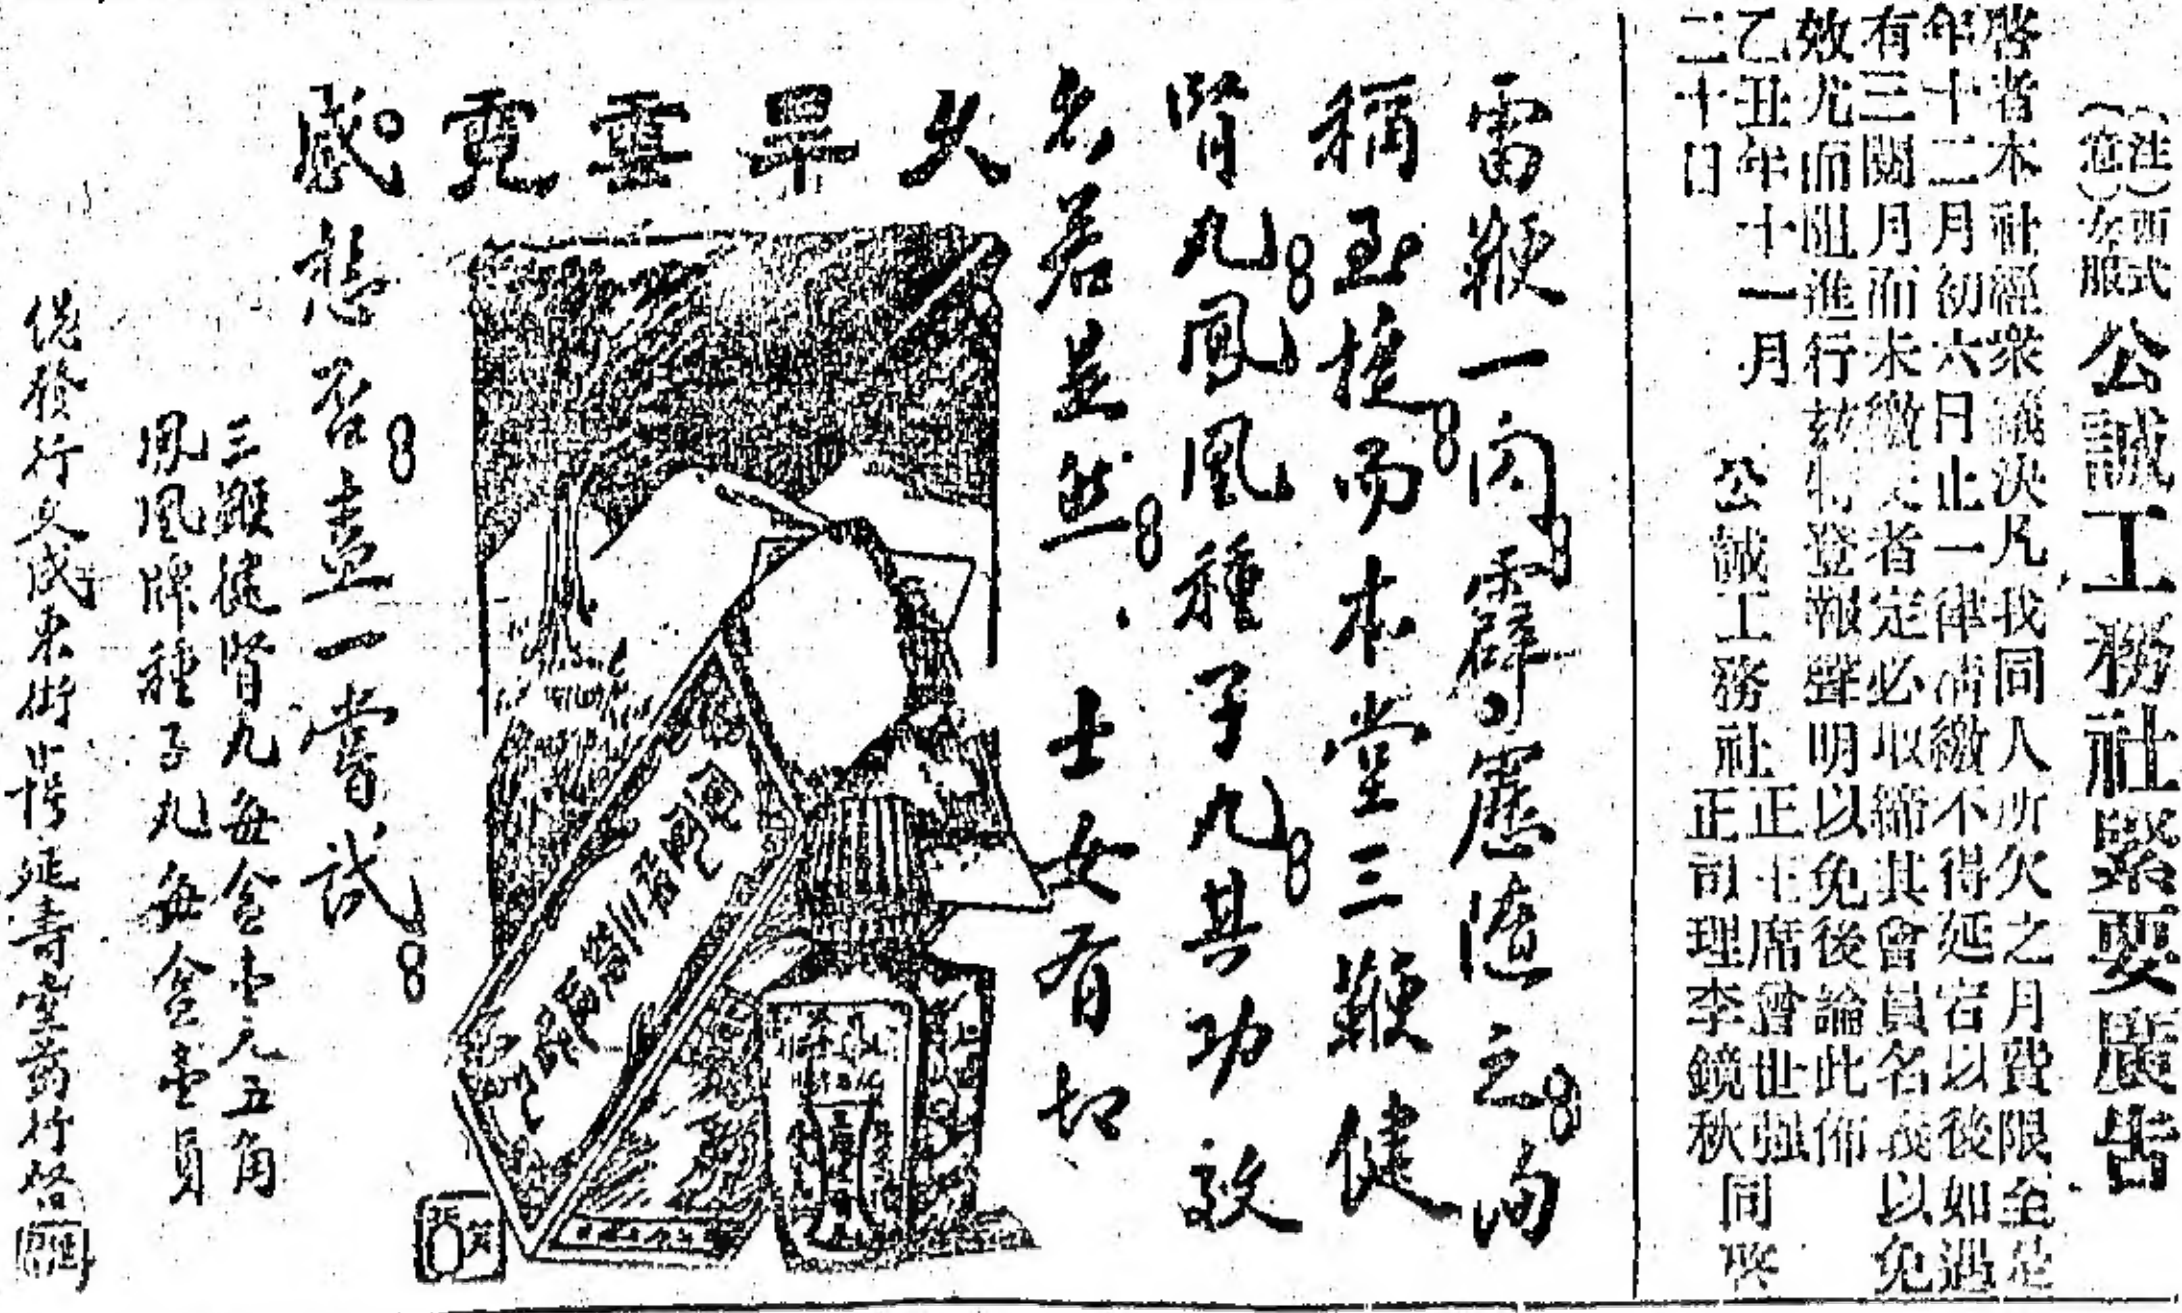 (注意)西式女服公誠工務社緊要廣告
啓者本社經衆議決凡我同人所欠之月費限至是
年十二月初六日止一律清繳不得延宕以後如過
有三關月而未繳 者定必取締其會員名義以免
效尤而阻進行茲特登報聲明以免後論此佈
乙丑年十一月
二十日
公誠工務社 正主席曾世強 正司理李鏡秋 同啓
雷鞭一闪霹靂隨之向
稱 而本堂三鞭健
腎丸鳳凰種子丸其功效
名若是然士女有切
久旱雲霓
感愁者盍一嘗試
三鞭健腎丸每盒壹元五角
鳳凰牌種子丸每盒壹員
總發行文成東街 延壽堂葯行啓